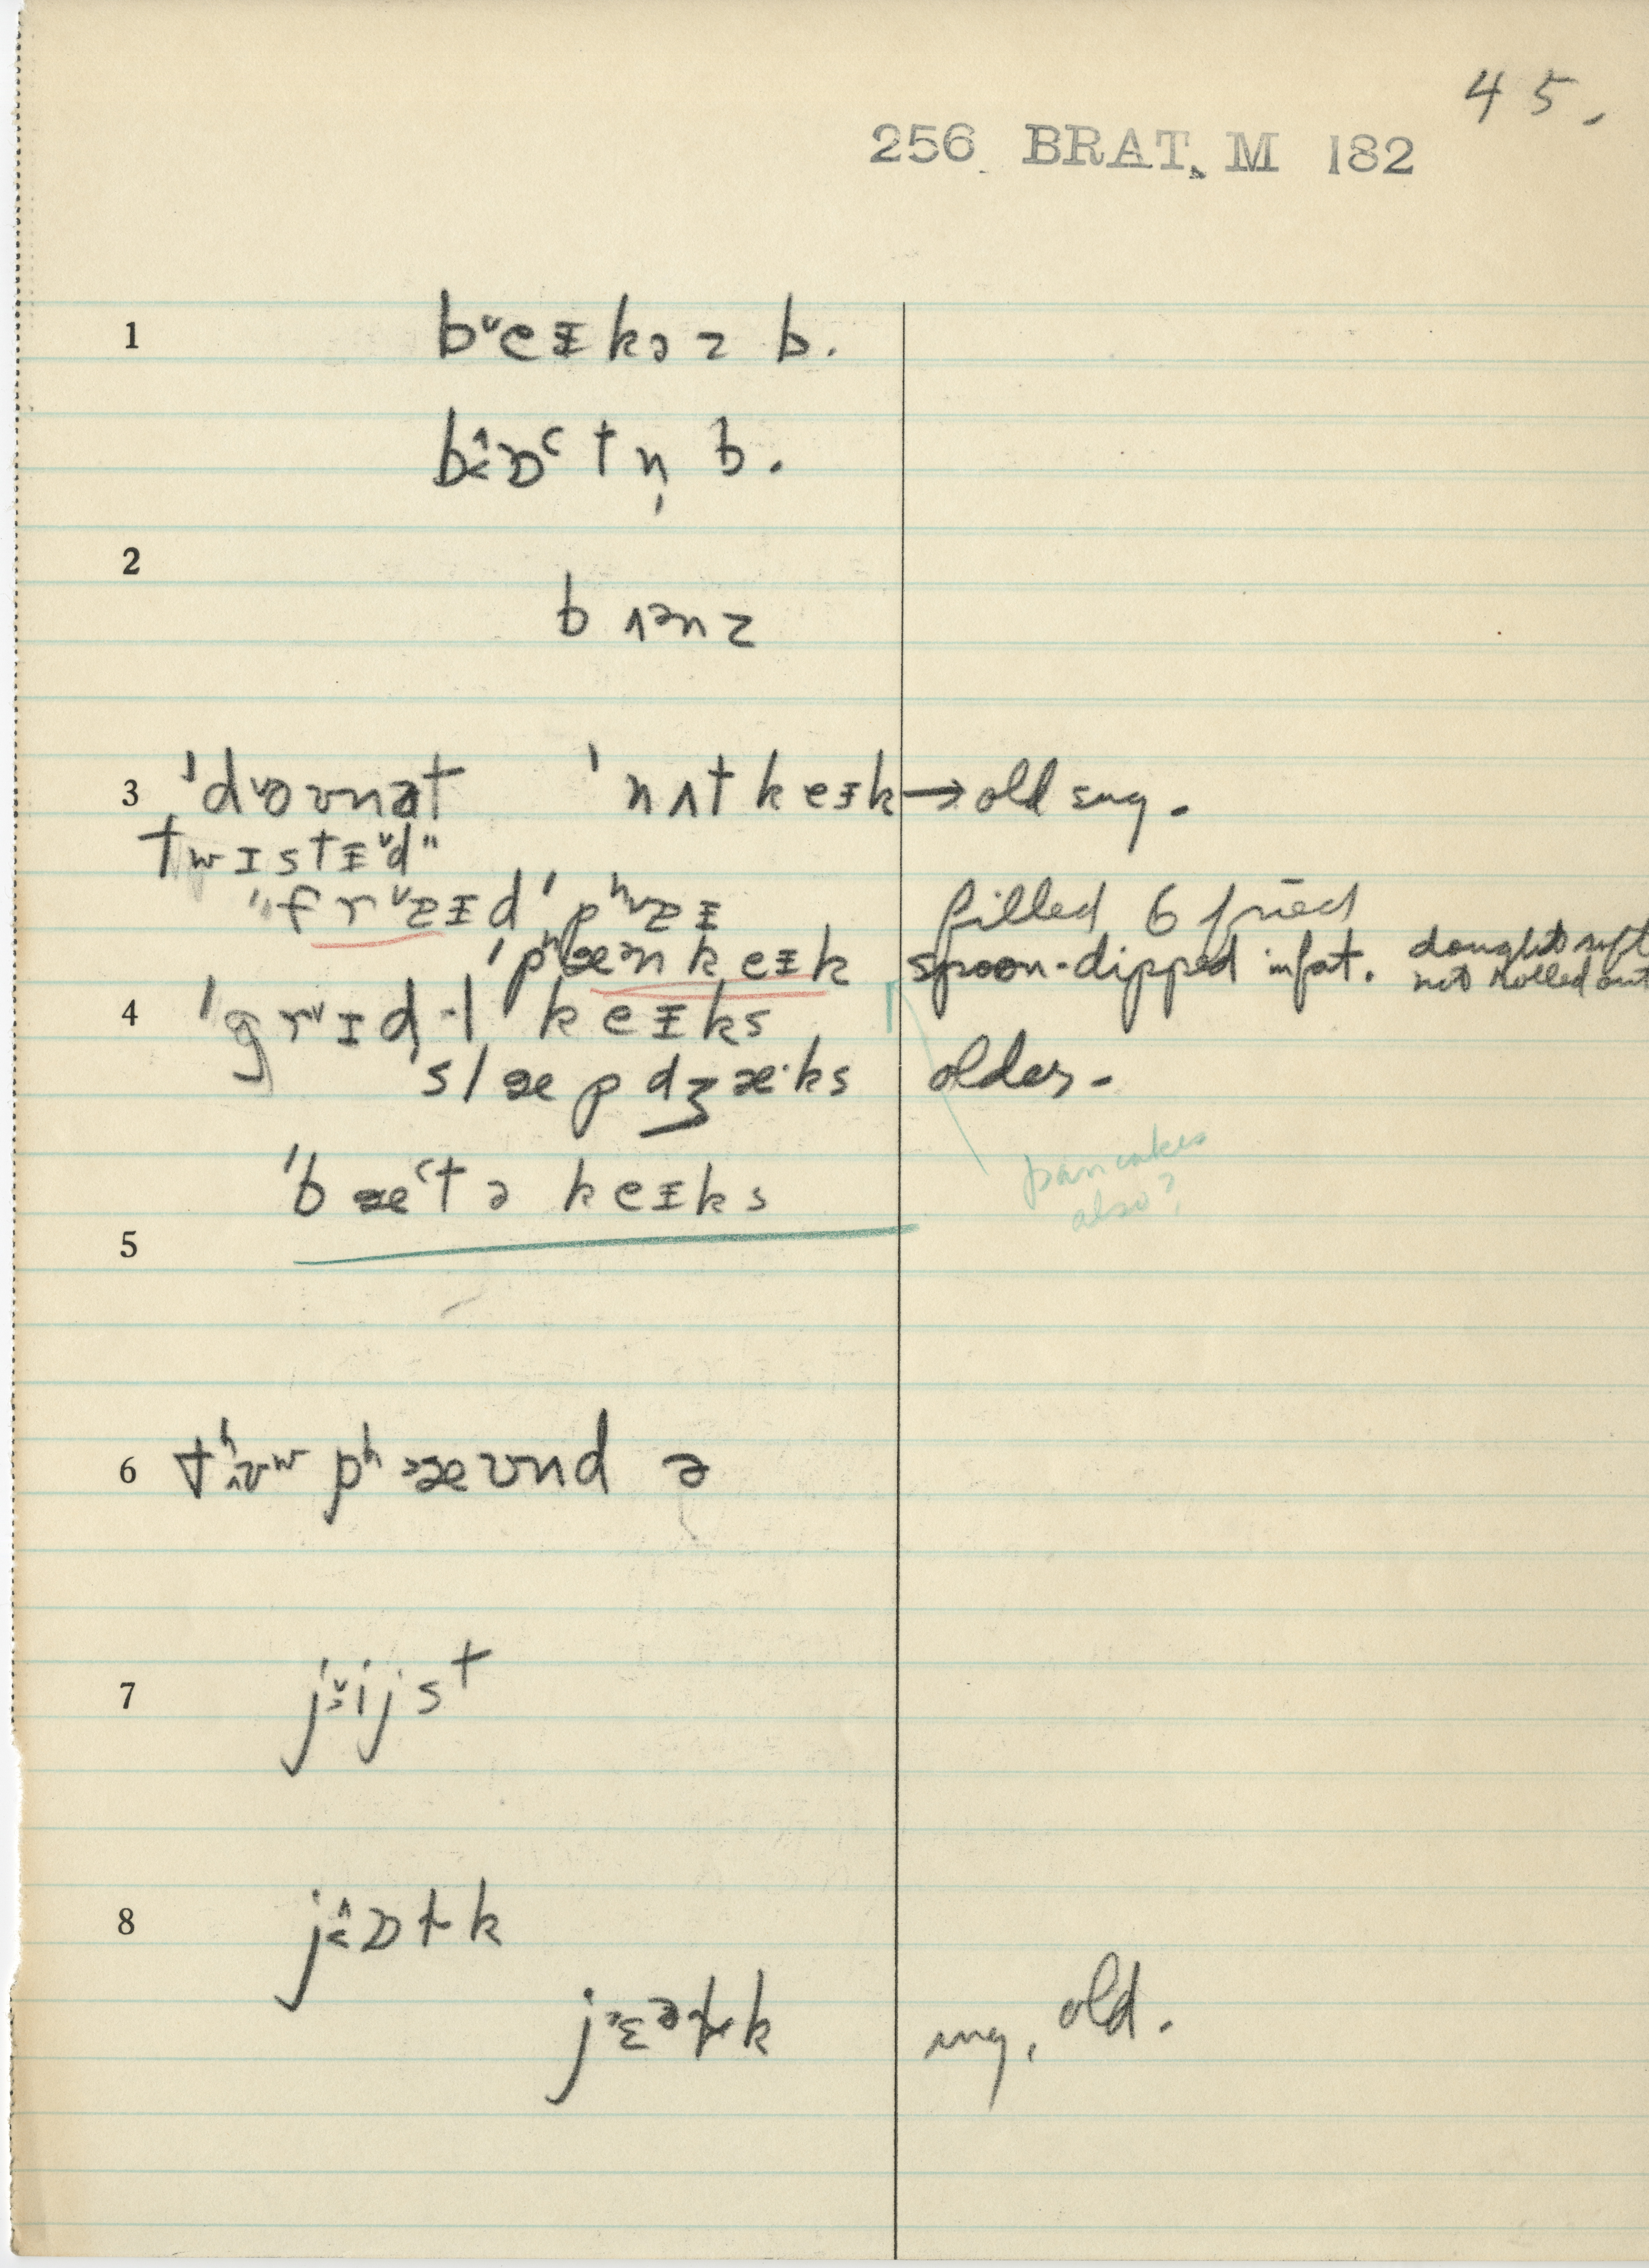 45.
256 BRAT, M 182
1 bᵛeᵻkəz b.
b̭ɒᶜtn̩ b.
2
bʌənz
3 ˈdᵛoʊnət ˈnʌtkeᵻk → old
twɪstᵻᵛd"
"frᵛɐᵻdˈpʰᵛɐᵻ filled & fried
ˈpʰæ̃nkeᵻk spoon-dipped in fat. dough soft
not rolled out
4 ˈgrᵛɪd-l keᵻks
ˈslæpdʒæ·ks older-
ˈbæᶜtə keᵻks pancakes
also?
5
6 tʰʌʊʷ pʰæʊndə
7 jᵛijst
8 jɒɫk
jɛəɫk old.